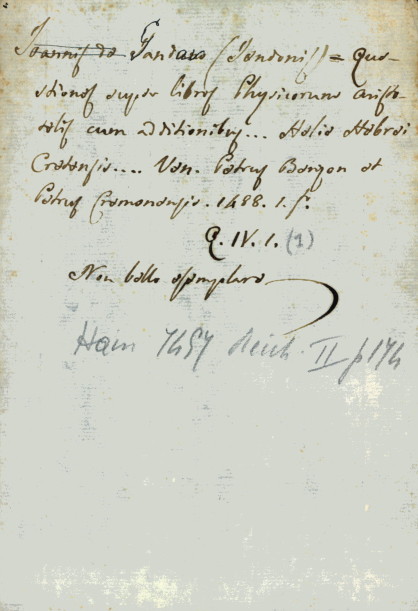 Joannis de Janduno (Jandonis) = Que-
stiones super libros Physicorum Aristo-
telis cum additionibus... Helie Hebrei
Cretensis.... Ven. Petrus Bergon et
Petrus Cremonensis. 1488. 1. f.º
Q. IV. 1. (1)
Non bello esemplare
Hain 7457 Reich. II p 174